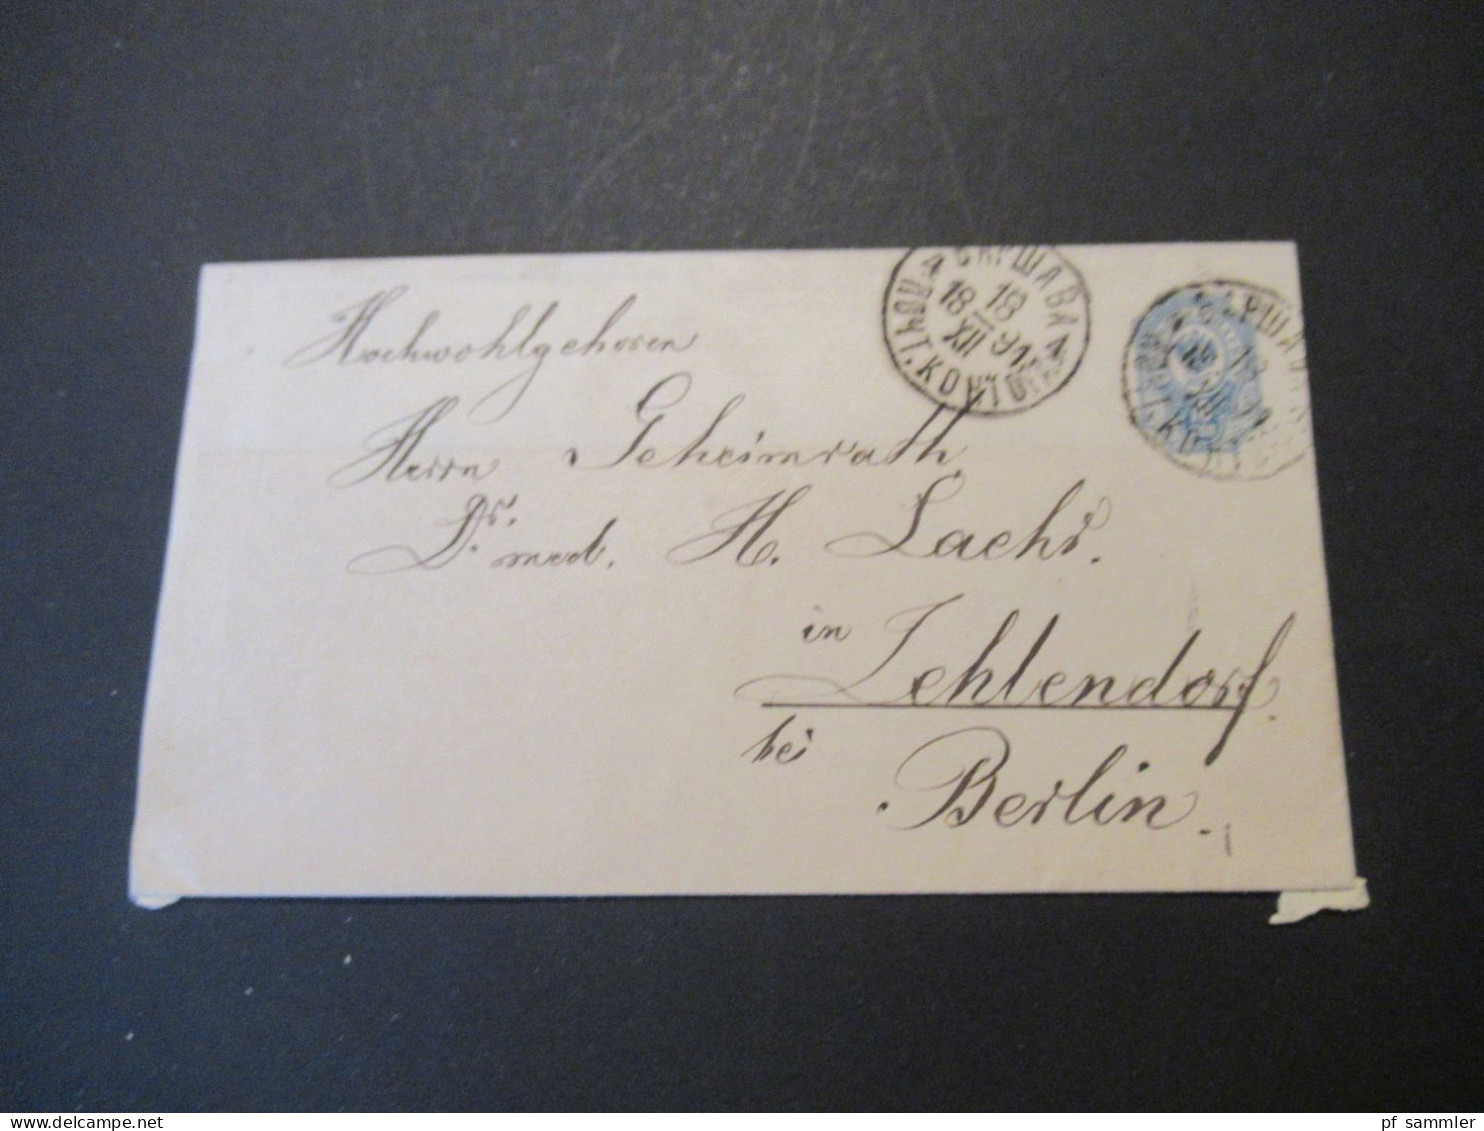 ВАРШАВА
18 18
XII
91
ПОЧТ. КОНТОРА
Hochwohlgehoren
Herrn Geheimrath
Dr. med. H. Lachs.
in Zehlendorf
bei
Berlin.
pf sammler